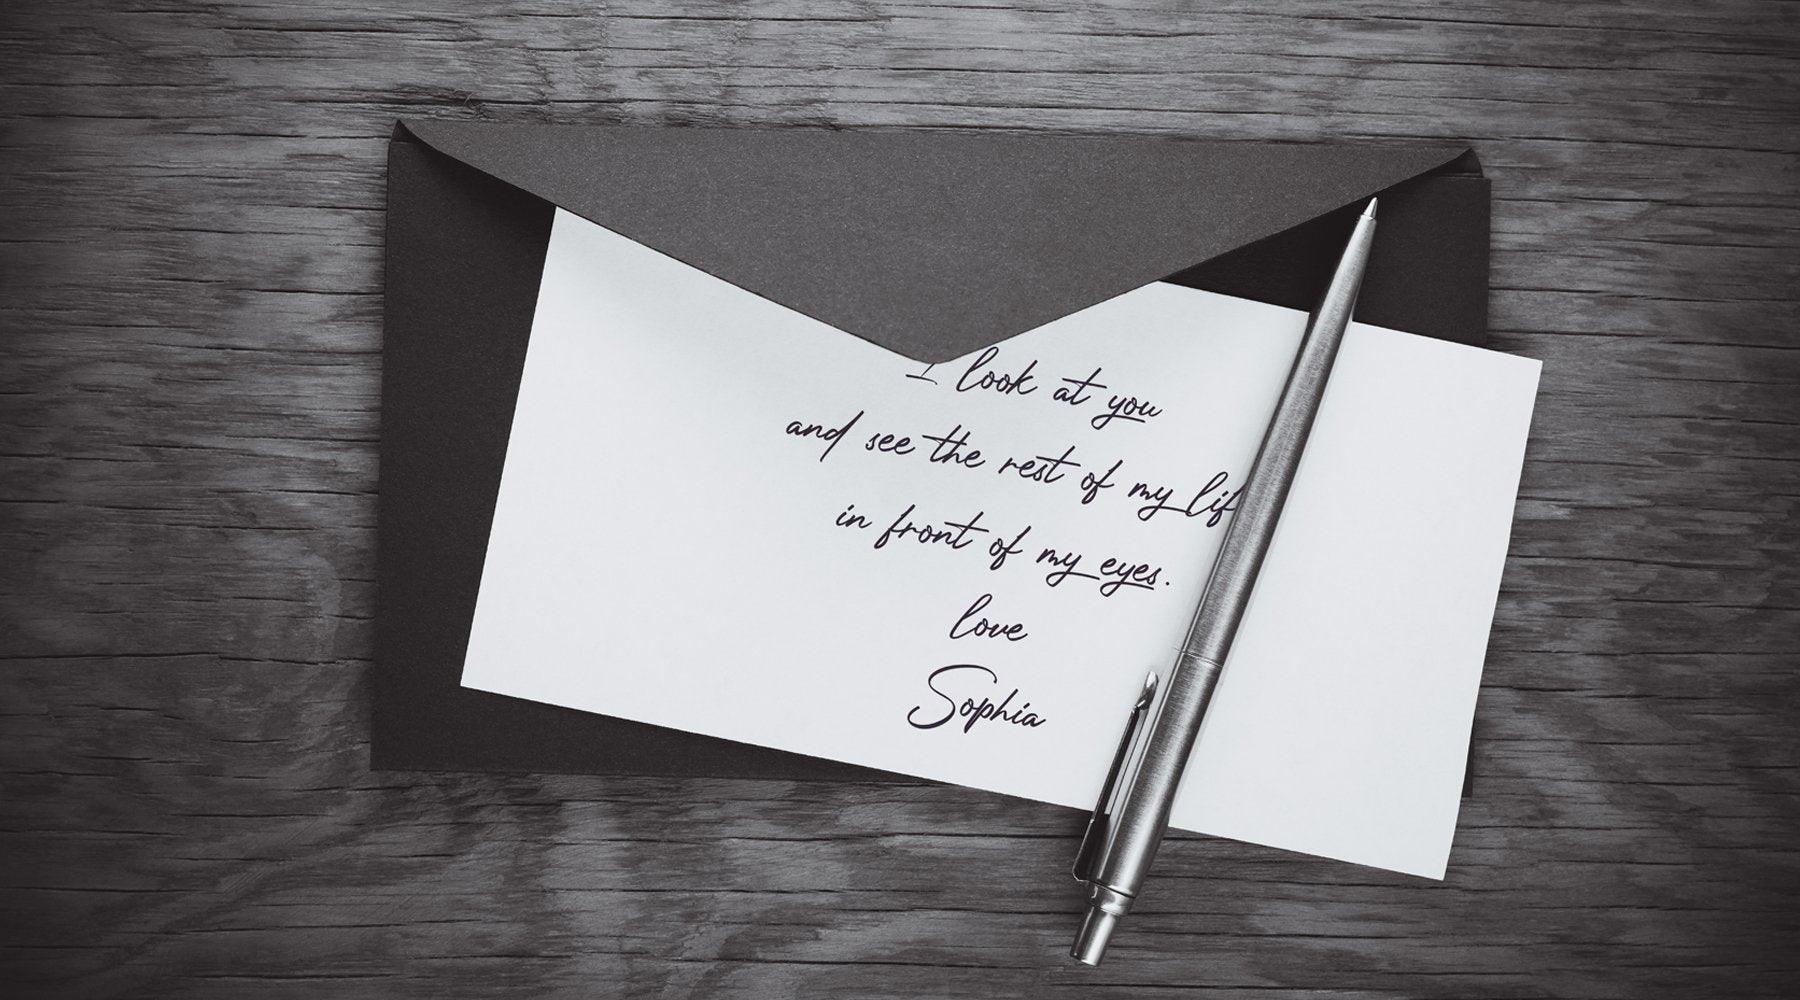 I look at you
and see the rest of my lif
in front of my eyes.
love
Sophia